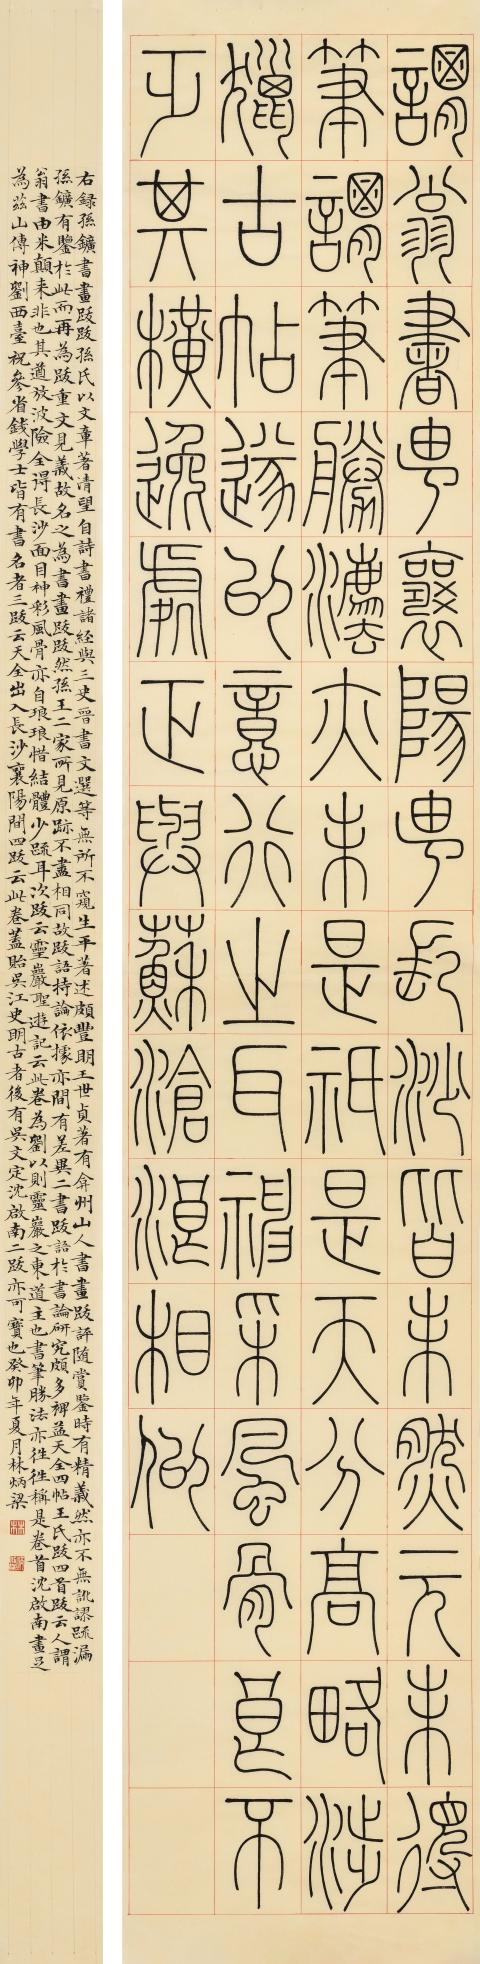 謂翁書由襄陽由長沙皆未然元未得
筆謂筆勝法亦未是祗是天分高略涉
獵古帖遂以意行之耳神采風骨良不
乏其橫逸處正與蘇滄浪相似
右錄孫鑛書畫跋跋孫氏以文章著清望自詩書禮諸經與三史晉書文選等無所不窺生平著述頗豐明王世貞著有弇州山人書畫跋評隨賞鑒時有精義然亦不無訛謬疏漏
孫鑛有鑒於此而再為跋重文見義故名之為書畫跋跋然孫王二家所見原跡不盡相同故跋語持論依據亦間有差異二書跋語於書論研究頗多裨益天全四帖王氏跋四首跋云人謂
翁書由米顛來非也其遒放波險全得長沙面目神彩風骨亦自琅琅惜結體少疏耳次跋云靈巖聖遊記云此卷為劉以則靈巖之東道主也書筆勝法亦往往稱是卷首沈啟南畫足
為茲山傳神劉西臺祝參省錢學士皆有書名者三跋云天全出入長沙襄陽間四跋云此卷蓋貽吳江史明古者後有吳文定沈啟南二跋亦可寶也癸卯年夏月林炳梁